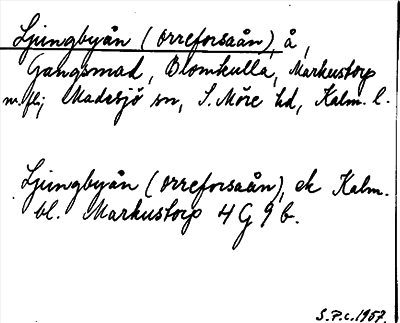 Ljungbyån (Orreforsaån), å,
Gangsmad, Blomkulla, Markustorp
m.fl.; Madesjö sn, S. Möre hd, Kalm. l.
Ljungbyån (Orreforsaån), ek Kalm.
bl. Markustorp 4 G 9 b.
S.P.c. 1957.